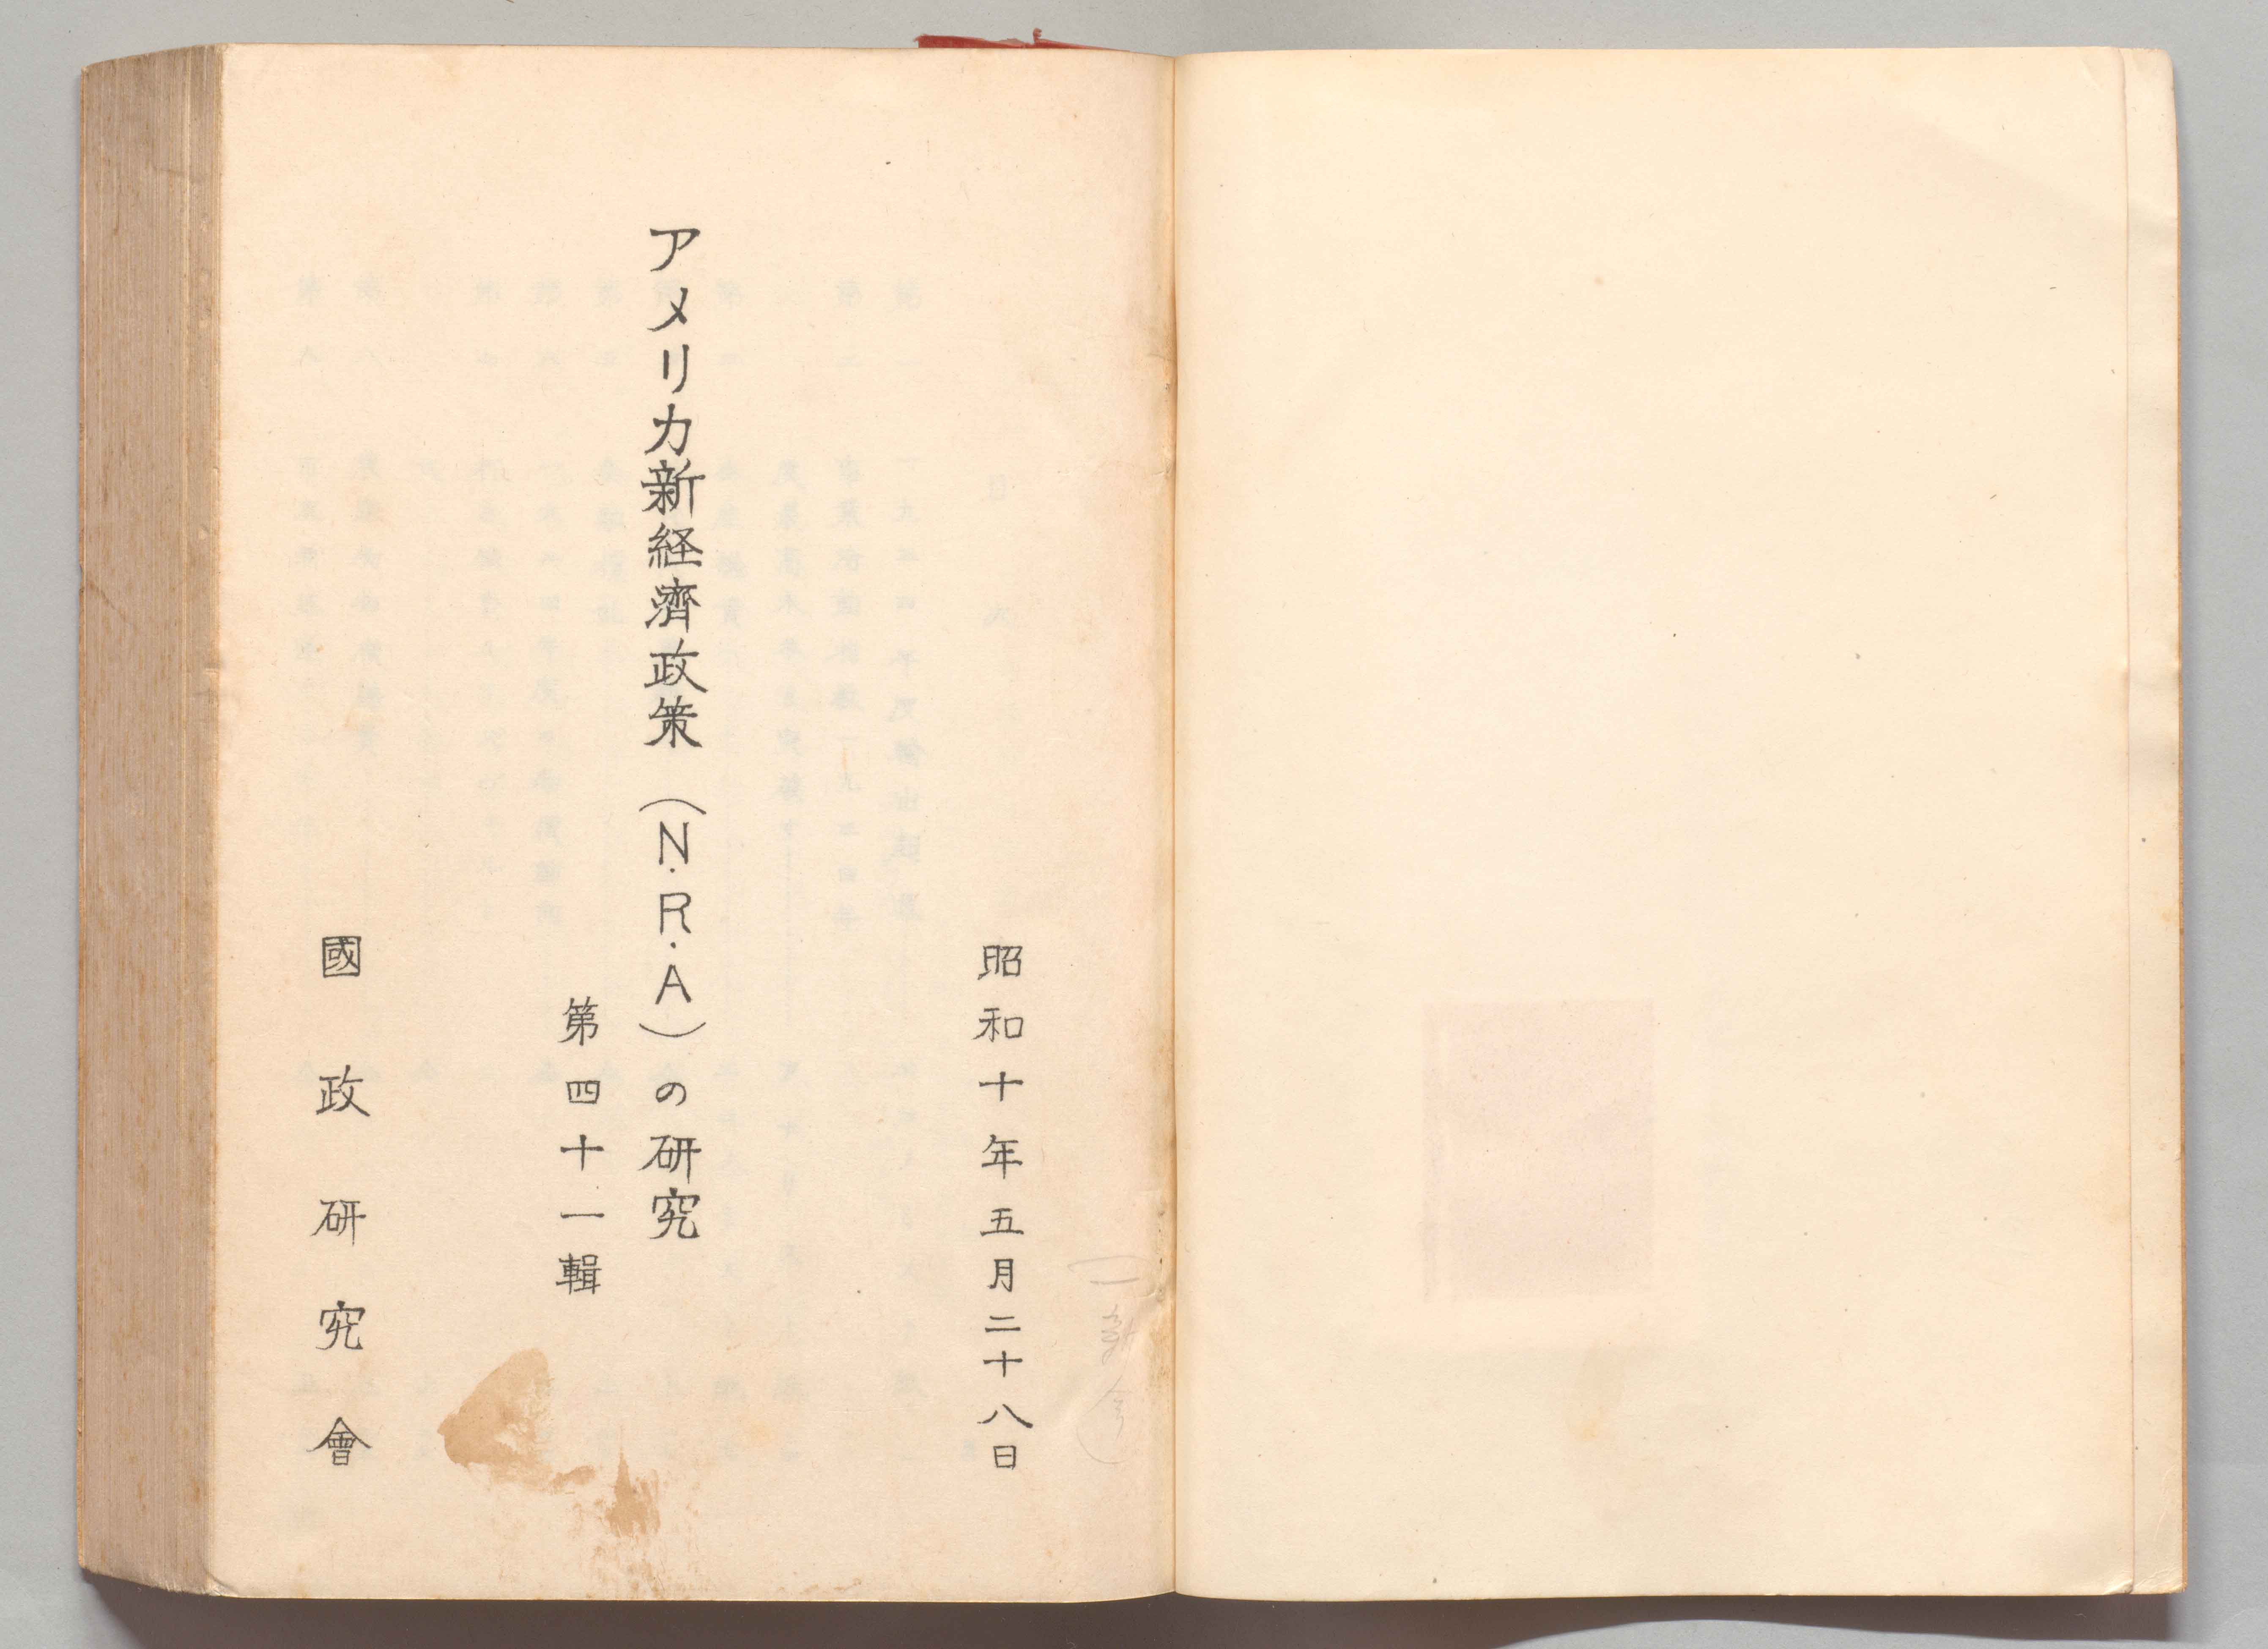 昭和十年五月二十八日
アメリカ新経濟政策（N.R.A）の研究
第四十一輯
國政研究會